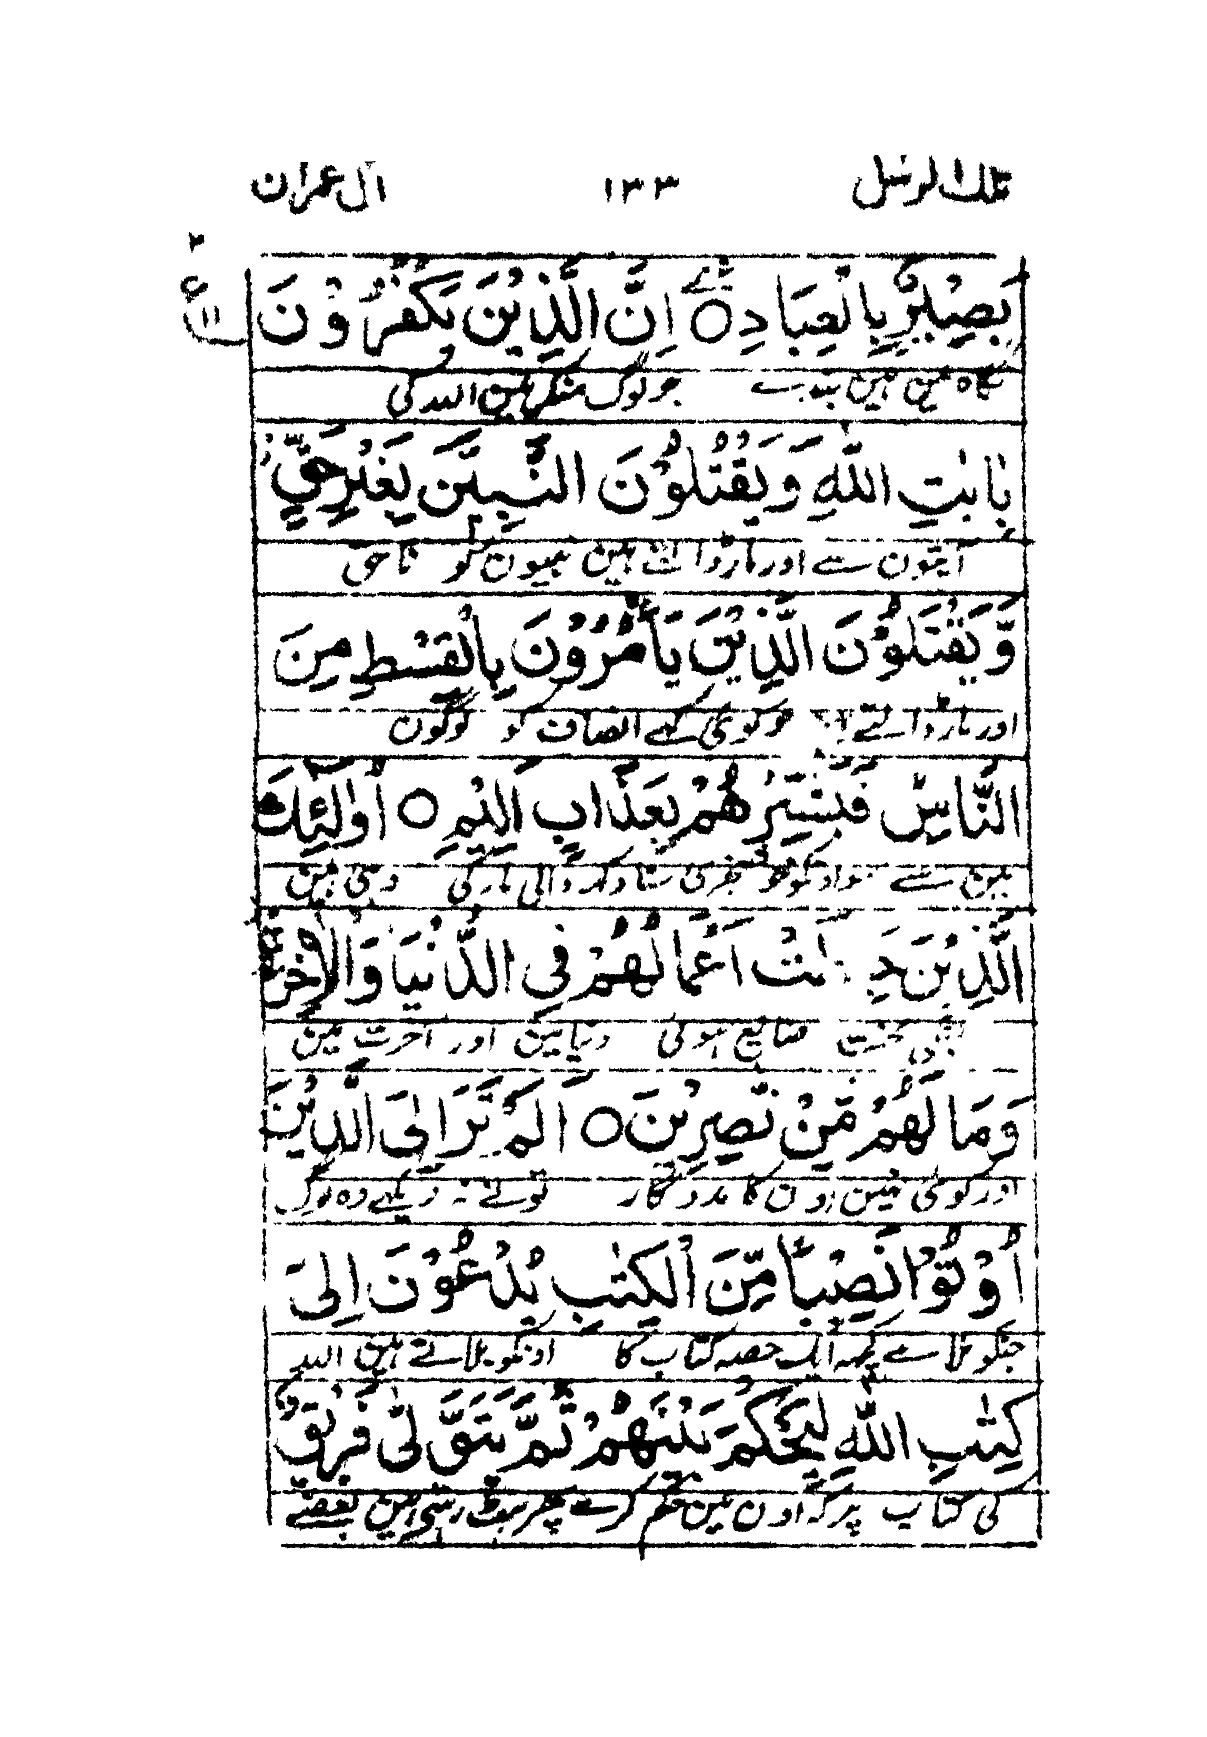 تلك الرسل ١٣٣ ال عمران
بَصِيْرٌۢ بِالْعِبَادِ ○ اِنَّ الَّذِيْنَ يَكْفُرُوْنَ
نگاہ مین ہین بندے جو لوگ منکر ہین اللہ کی
بِاٰيٰتِ اللّٰهِ وَيَقْتُلُوْنَ النَّبِيّٖنَ بِغَيْرِ حَقٍّ
آیتون سے اور مار ڈالتے ہین نبیون کو ناحق
وَّيَقْتُلُوْنَ الَّذِيْنَ يَاْمُرُوْنَ بِالْقِسْطِ مِنَ
اور مار ڈالتے جو کوئی کہے انصاف کو لوگون
النَّاسِ فَبَشِّرْهُمْ بِعَذَابٍ اَلِيْمٍ ○ اُولٰٓئِكَ
مین سے سو اونکو خوشخبری سنا دکھ والی مار کی وہی ہین
الَّذِيْنَ اَعْمَالُهُمْ فِي الدُّنْيَا وَالْاٰخِرَةِ
محنت ضایع ہوئی دنیا مین اور آخرت مین
وَمَا لَهُمْ مِّنْ نّٰصِرِيْنَ ○ اَلَمْ تَرَ اِلَى الَّذِيْنَ
اور کوئی نہین اون کا مددگار تونے نہ دیکھے وہ لوگ
اُوْتُوْا نَصِيْبًا مِّنَ الْكِتٰبِ يُدْعَوْنَ اِلٰى
جنکو ملا ہے کچھ ایک حصہ کتاب کا اونکو بلاتے ہین اللہ
كِتٰبِ اللّٰهِ لِيَحْكُمَ بَيْنَهُمْ ثُمَّ يَتَوَلّٰى فَرِيْقٌ
کی کتاب پر کہ اون مین حکم کرے پھر ہٹ رہتی ہین بعضے
٢
ع
١١